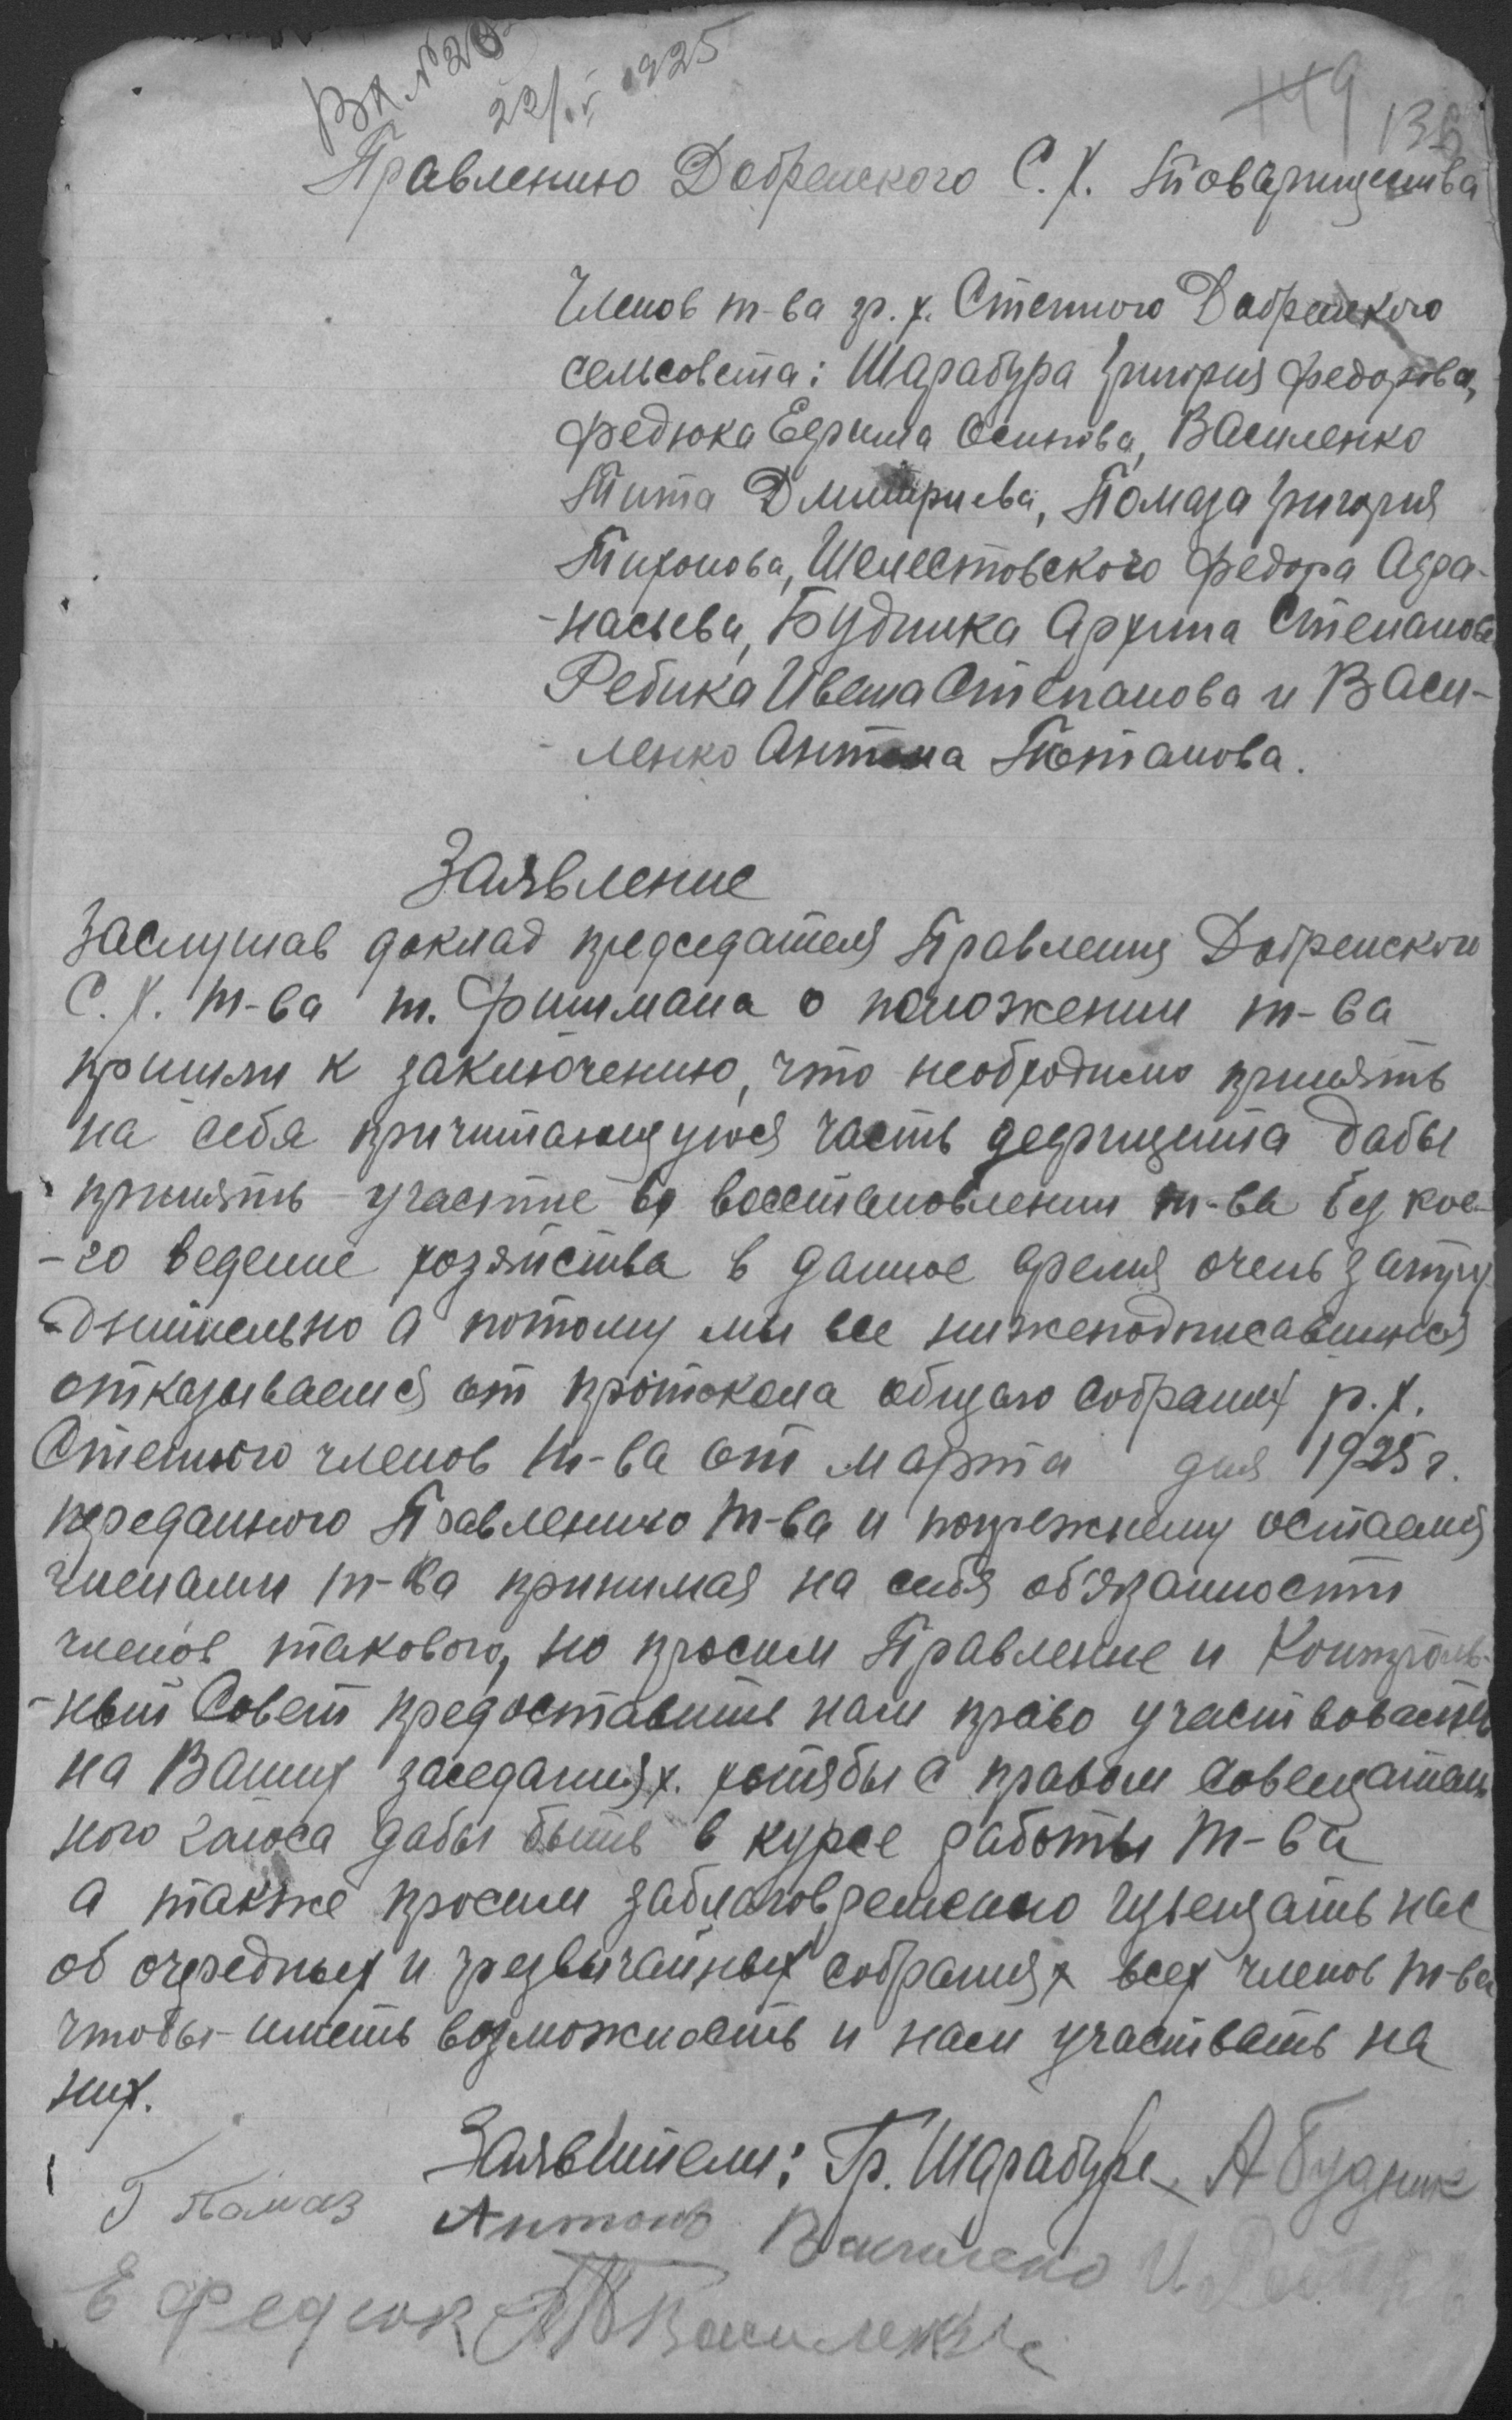 Вх №20
22/IV 1925
119
136
Правлению Добренского С. Х. Товарищества
Членов т-ва гр. х. Степного Добренского
сельсовета: Шарабура Григория Федорова,
Федюка Ефима Осипова, Василенко
Тита Дмитриева, Помаза Григория
Тихонова, Шелестовского Федора Афа-
-насьева, Будника Архипа Степанова
Ребика Ивана Степанова и Васи-
-ленко Антона Потапова.
Заявление
Заслушав доклад председателя Правления Добренского
С. Х. т-ва т. Фишмана о положении т-ва
пришли к заключению, что необходимо принять
на себя причитающуюся часть дефицита дабы
принять участие во восстановлении т-ва без кое-
-го ведение хозяйства в данное время очень затру
-днительно а потому мы все нижеподписавшиеся
отказываемся от протокола общаго собрания р. х.
Степного членов т-ва от марта дня 1925 г.
переданного Правлению т-ва и попрежнему остаемся
членами т-ва принимая на себя об'язанности
членов такового, но просим Правление и Контроль-
-ный Совет предоставить нам право участвовать
на Ваших заседаниях. хотябы с правом совещатель
ного голоса дабы быть в курсе работы т-ва
а также просим заблаговременно извещать нас
об очередных и чрезвычайных собраниях всех членов т-ва
чтобы иметь возможность и нам участвать на
них.
Заявители: Гр. Шарабура А Будник
Г Помаз Антон Василенко И.
Е Федюк Т Василенко